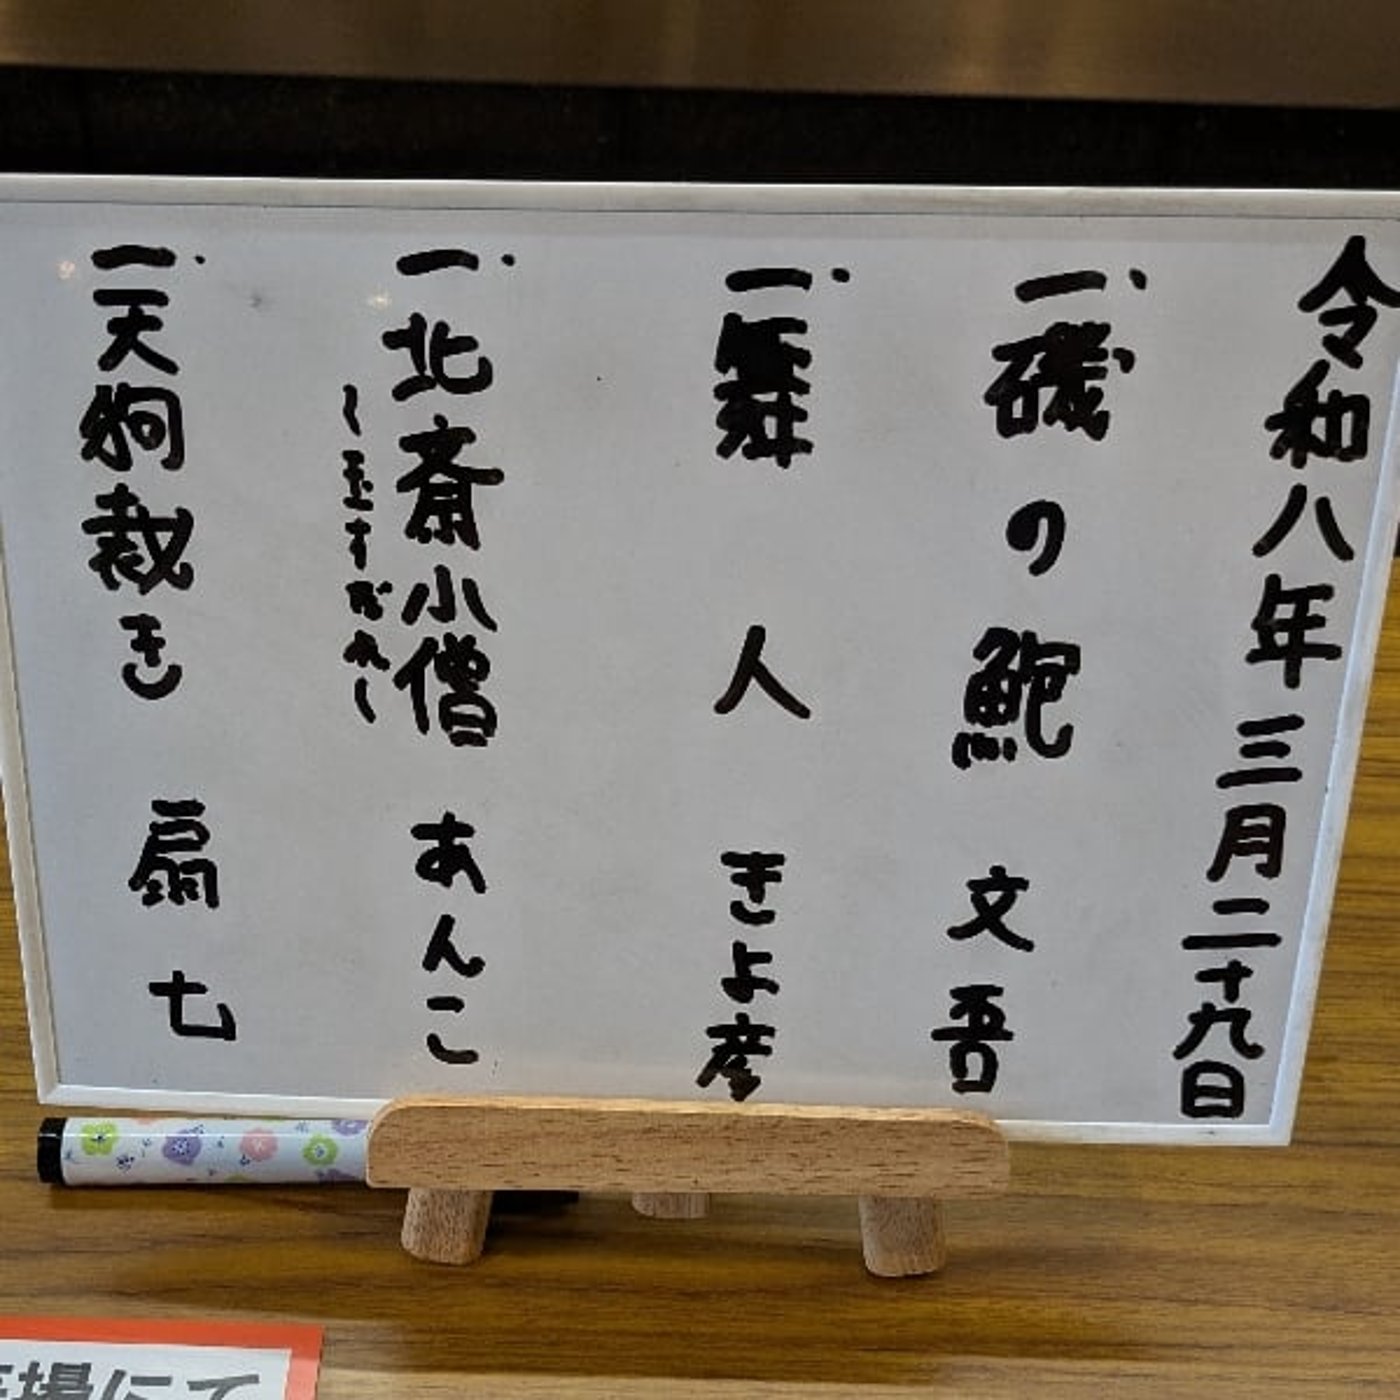 令和八年三月二十九日
一、磯の鮑 文吾
一、舞人 きよ彦
一、北斎小僧 あんこ
〜玉すだれ〜
一、天狗裁き 扇七
にて